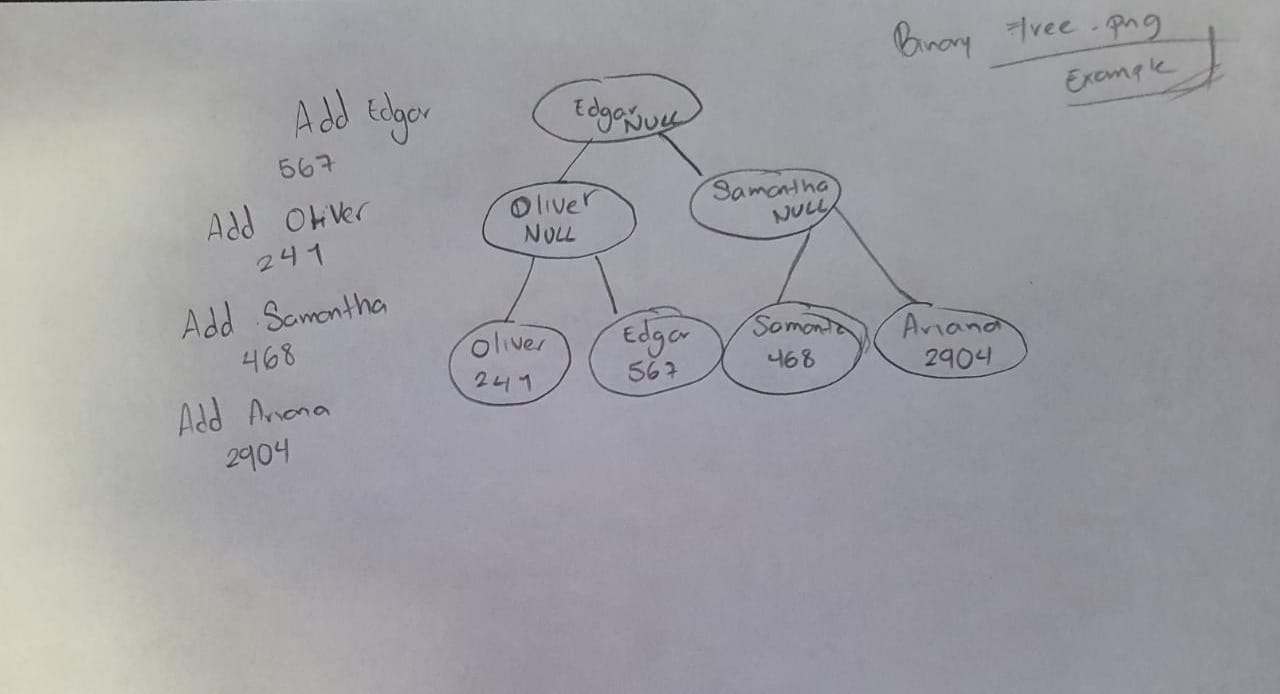 Binary tree.png
Example
Add Edgar
567
Add Oliver
241
Add Samantha
468
Add Ariana
2904
Edgar
NULL
Oliver
NULL
Samantha
NULL
Oliver
241
Edgar
567
Samanta
468
Ariana
2904